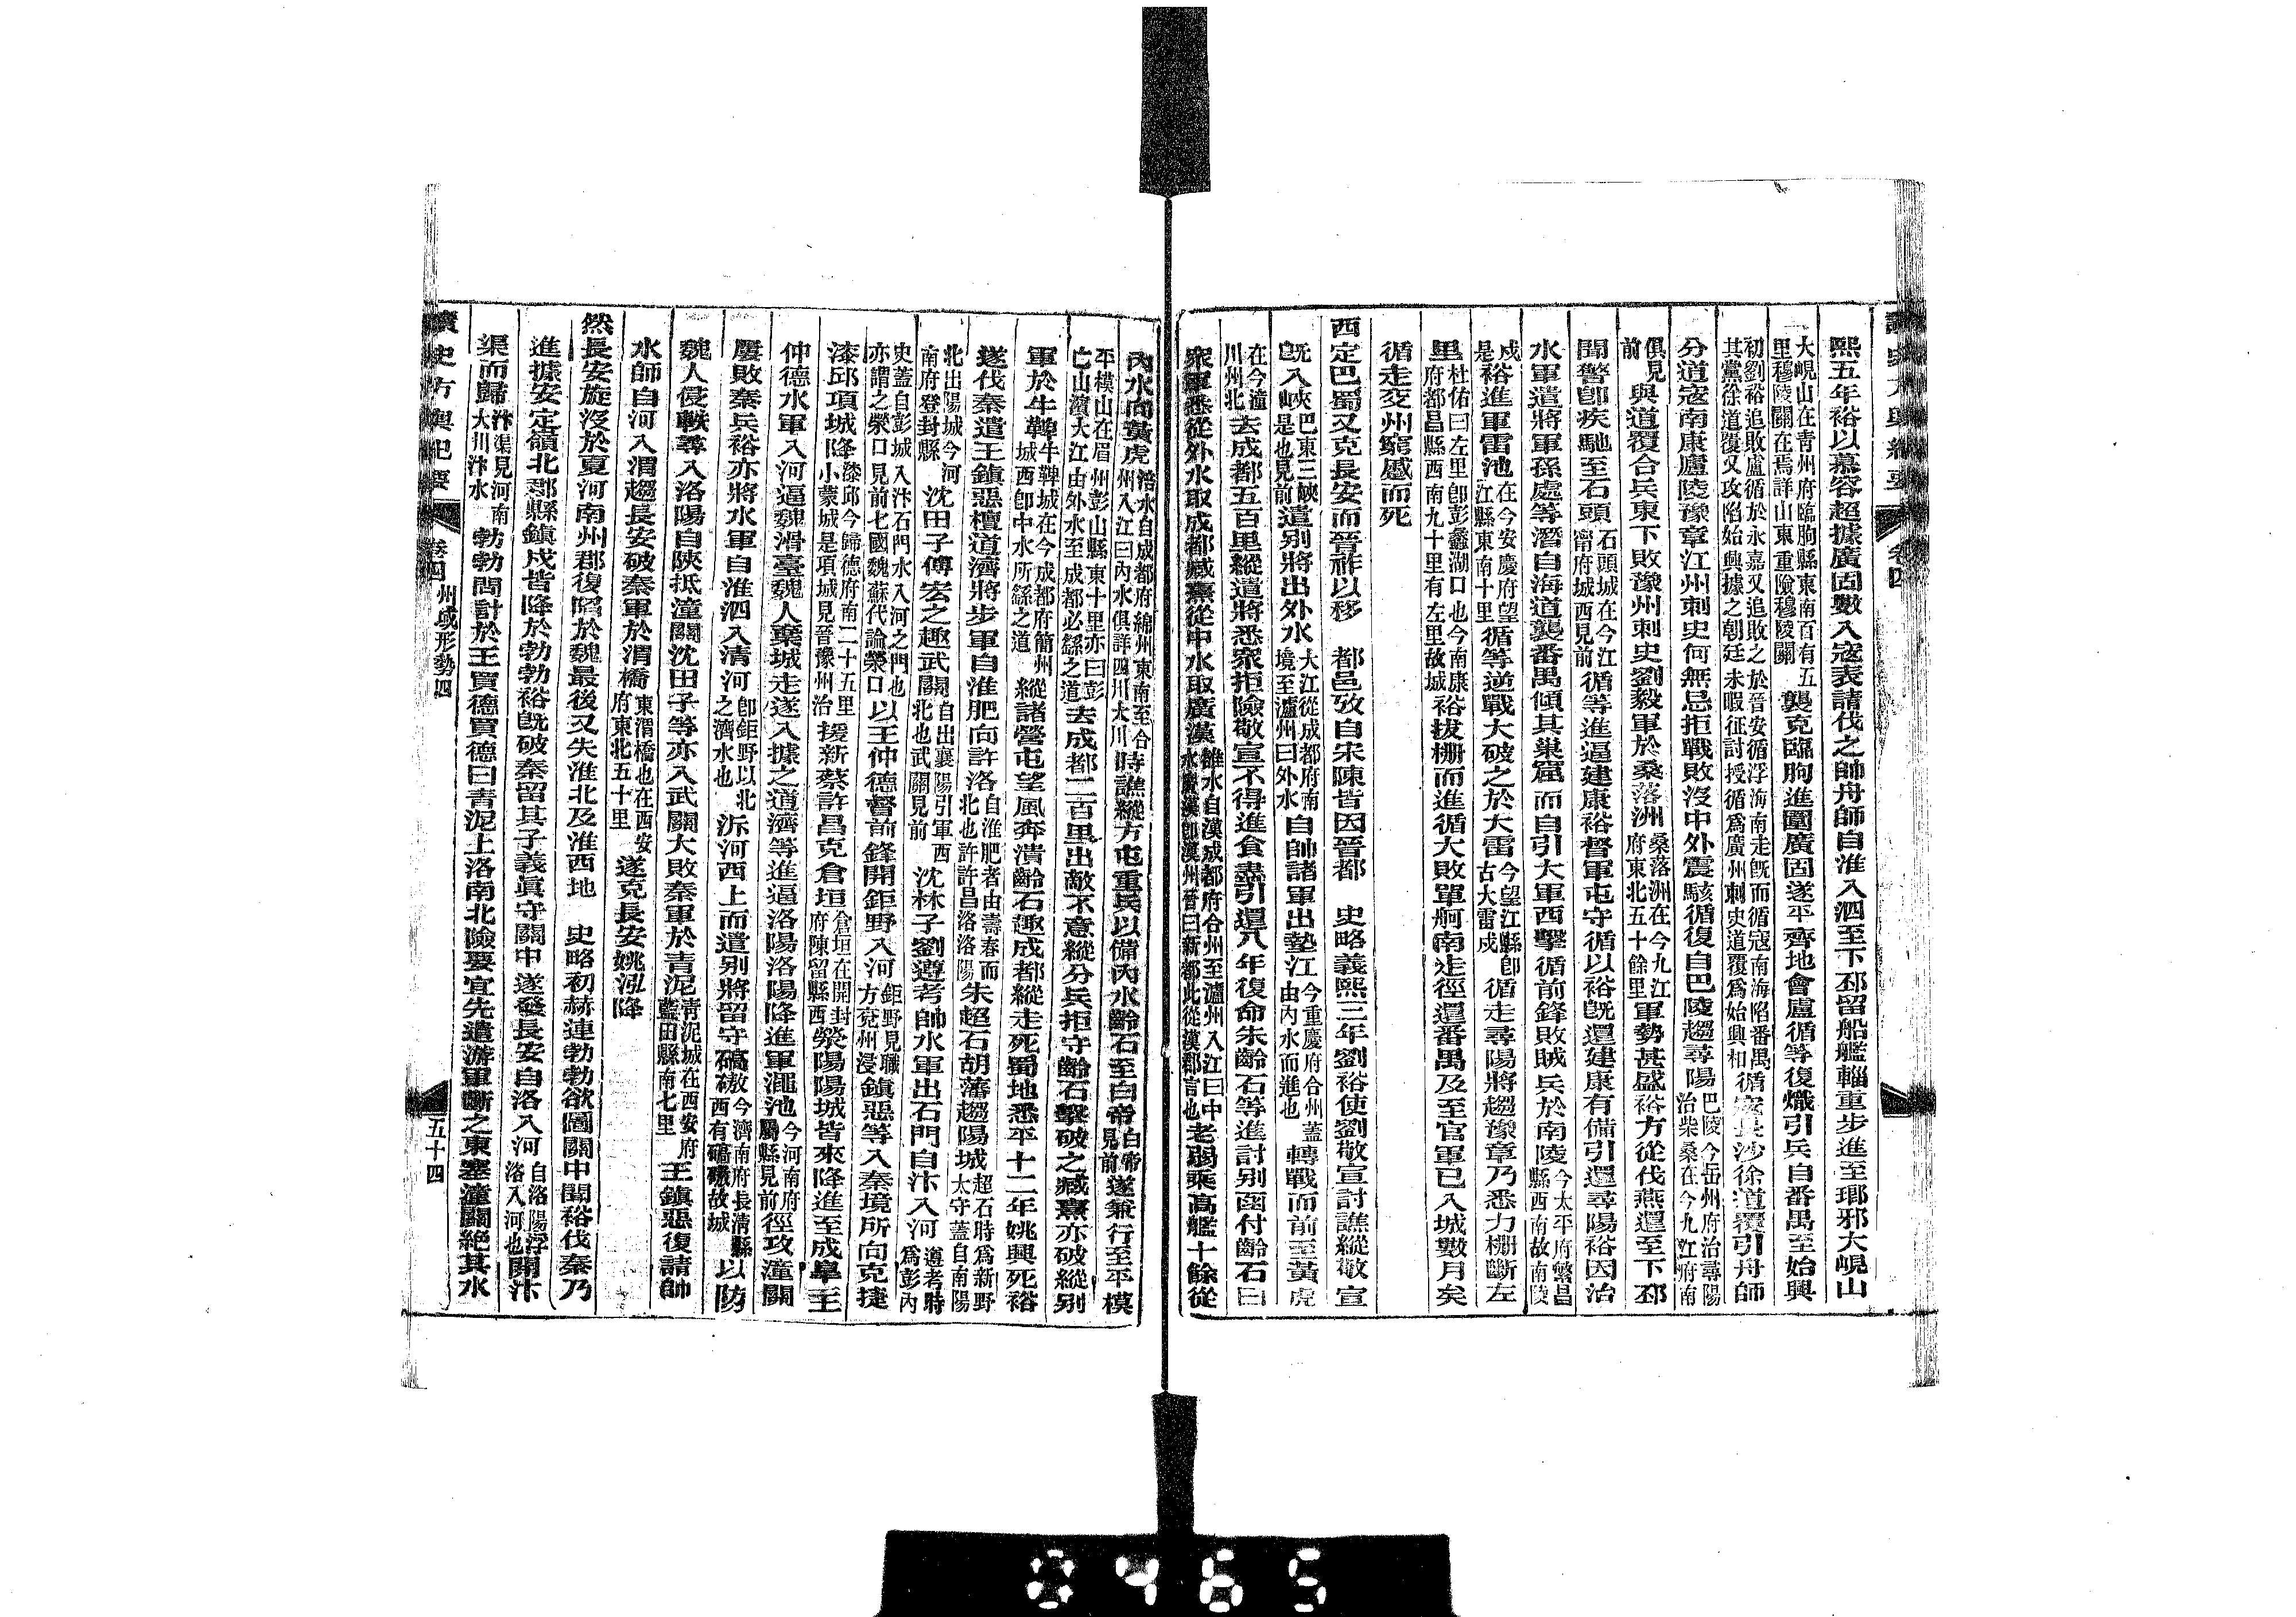 熙五年裕以慕容超據廣固數入寇表請伐之帥舟師自淮入泗至下邳留船艦輜重步進至瑯邪大峴山
大峴山在青州府臨朐縣東南百有五里穆陵關在焉詳山東重險穆陵關襲克臨朐進圍廣固遂平齊地會盧循等復熾引兵自番禺至始興
初劉裕追敗盧循於永嘉又追敗之於晉安循浮海南走旣而循寇南海陷番禺其黨徐道覆又攻陷始興據之朝廷未暇征討授循爲廣州刺史道覆爲始興相循安長沙徐道覆引舟師
分道寇南康廬陵豫章江州刺史何無忌拒戰敗沒中外震駭循復自巴陵趨尋陽巴陵今岳州府治尋陽治柴桑在今九江府南
俱見前與道覆合兵東下敗豫州刺史劉毅軍於桑落洲桑落洲在今九江府東北五十餘里軍勢甚盛裕方從伐燕還至下邳
聞警卽疾馳至石頭石頭城在今江甯府城西見前循等進逼建康裕督軍屯守循以裕旣還建康有備引還尋陽裕因治
水軍遣將軍孫處等潛自海道襲番禺傾其巢窟而自引大軍西擊循前鋒敗賊兵於南陵今太平府繁昌縣西南故南陵
戍是裕進軍雷池在今安慶府望江縣東南十里循等逆戰大破之於大雷今望江縣卽古大雷戍循走尋陽將趨豫章乃悉力柵斷左
里杜佑曰左里卽彭蠡湖口也今南康府都昌縣西南九十里有左里故城裕拔柵而進循大敗單舸南走徑還番禺及至官軍已入城數月矣
循走交州窮蹙而死
西定巴蜀又克長安而晉祚以移　都邑攷自宋陳皆因晉都　史略義熙三年劉裕使劉敬宣討譙縱敬宣
旣入峽巴東三峽是也見前遣別將出外水大江從成都府南境至瀘州曰外水自帥諸軍出墊江今重慶府合州蓋由內水而進也轉戰而前至黃虎
在今潼川州北去成都五百里縱遣將悉眾拒險敬宣不得進食盡引還八年復命朱齡石等進討別函付齡石曰
眾軍悉從外水取成都臧熹從中水取廣漢雒水自漢成都府合州至瀘州入江曰中水廣漢卽漢州晉曰新都此從漢郡言也老弱乘高艦十餘從
內水向黃虎涪水自成都府綿州東南至合州入江曰內水俱詳四川大川時譙縱方屯重兵以備內水齡石至白帝白帝見前遂兼行至平模
平模山在眉州彭山縣東十里亦曰彭亡山濱大江由外水至成都必繇之道去成都二百里出敵不意縱分兵拒守齡石擊破之臧熹亦破縱別
軍於牛鞞牛鞞城在今成都府簡州城西卽中水所繇之道縱諸營屯望風奔潰齡石趣成都縱走死蜀地悉平十二年姚興死裕
遂伐秦遣王鎮惡檀道濟將步軍自淮肥向許洛自淮肥者由壽春而北也許許昌洛洛陽朱超石胡藩趨陽城超石時爲新野太守蓋自南陽
北出陽城今河南府登封縣沈田子傅宏之趣武關自出襄陽引軍西北也武關見前沈林子劉遵考帥水軍出石門自汴入河遵考時爲彭內
史蓋自彭城入汴石門水入河之門也亦謂之滎口見前七國魏蘇代論滎口以王仲德督前鋒開鉅野入河鉅野見職方兗州浸鎮惡等入秦境所向克捷
漆邱項城降漆邱今歸德府南二十五里小蒙城是項城見晉豫州治援新蔡許昌克倉垣倉垣在開封府陳留縣西滎陽陽城皆來降進至成皐王
仲德水軍入河逼魏滑臺魏人棄城走遂入據之道濟等進逼洛陽洛陽降進軍澠池今河南府屬縣見前徑攻潼關
屢敗秦兵裕亦將水軍自淮泗入清河卽鉅野以北之濟水也泝河西上而遣別將留守碻磝今濟南府長清縣西有碻磝故城以防
魏人侵軼尋入洛陽自陝抵潼關沈田子等亦入武關大敗秦軍於青泥青泥城在西安府藍田縣南七里王鎮惡復請帥
水師自河入渭趨長安破秦軍於渭橋東渭橋也在西安府東北五十里遂克長安姚泓降
然長安旋沒於夏河南州郡復陷於魏最後又失淮北及淮西地　史略初赫連勃勃欲圖關中聞裕伐秦乃
進據安定嶺北郡縣鎮戍皆降於勃勃裕旣破秦留其子義眞守關中遂發長安自洛入河自洛陽浮洛入河也開汴
渠而歸汴渠見河南大川汴水勃勃問計於王買德買德曰青泥上洛南北險要宜先遣游軍斷之東塞潼關絕其水
讀史方輿紀要　卷四　州域形勢四　五十四
0465